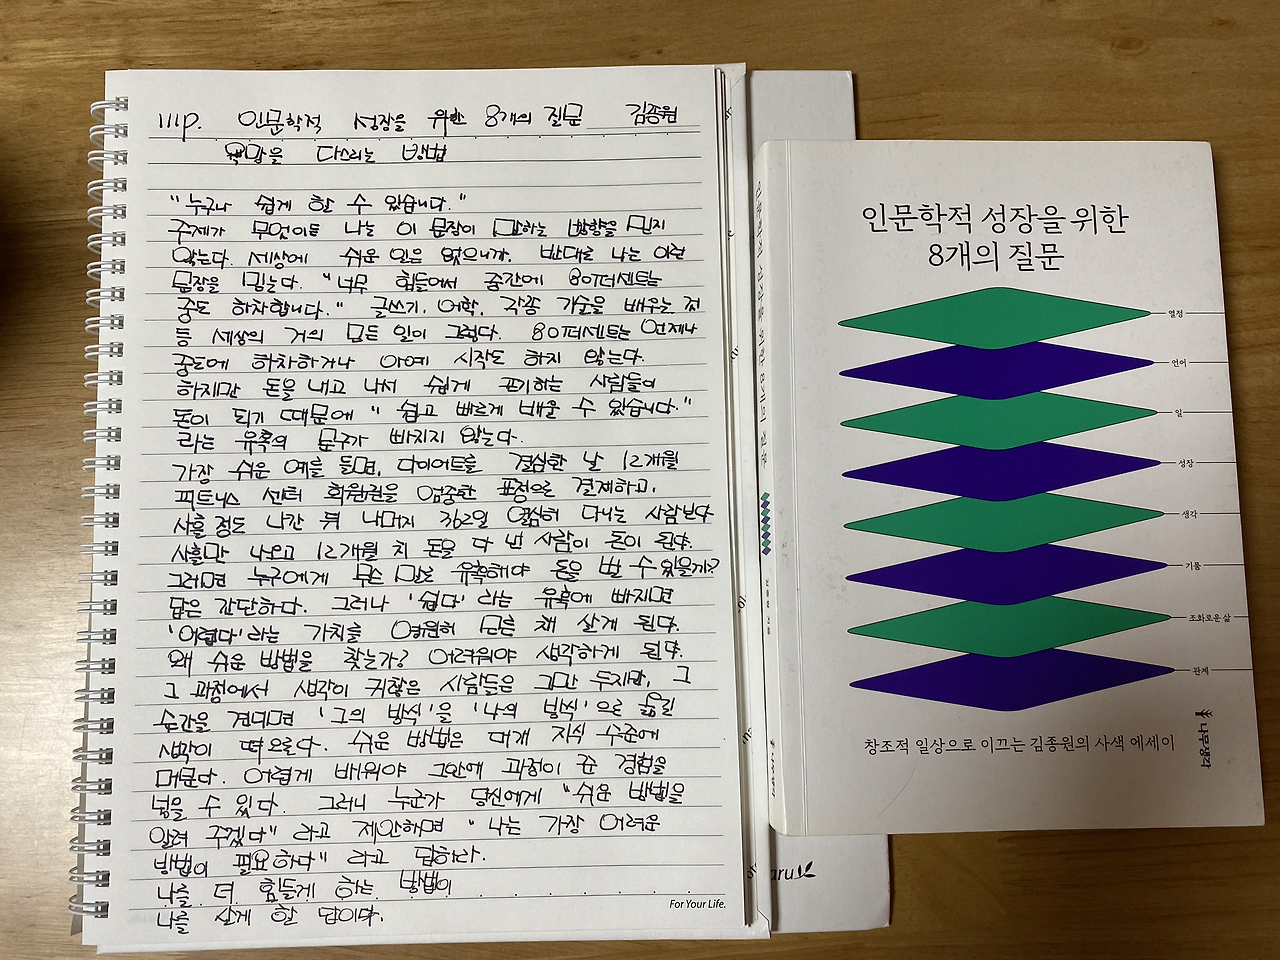 111p. 인문학적 성장을 위한 8개의 질문 김종원
욕망을 다스리는 방법
"누구나 쉽게 할 수 있습니다."
주제가 무엇이든 나는 이 문장이 말하는 방향을 믿지
않는다. 세상에 쉬운 일은 없으니까. 반대로 나는 이런
문장을 믿는다. "너무 힘들어서 중간에 80퍼센트는
중도 하차합니다." 글쓰기, 어학, 각종 기술을 배우는 것
등 세상의 거의 모든 일이 그렇다. 80퍼센트는 언제나
중도에 하차하거나 아예 시작도 하지 않는다.
하지만 돈을 내고 나서 쉽게 포기하는 사람들이
돈이 되기 때문에 "쉽고 빠르게 배울 수 있습니다."
라는 유혹의 문구가 빠지지 않는다.
가장 쉬운 예를 들면, 다이어트를 결심한 날 12개월
피트니스 센터 회원권을 엄중한 표정으로 결제하고,
사흘 정도 나간 뒤 나머지 362일 열심히 다니는 사람보다
사흘만 나오고 12개월 치 돈을 다 낸 사람이 돈이 된다.
그러면 누구에게 무슨 말로 유혹해야 돈을 벌 수 있을까?
답은 간단하다. 그러나 '쉽다'라는 유혹에 빠지면
'어렵다'라는 가치를 영원히 모른 채 살게 된다.
왜 쉬운 방법을 찾는가? 어려워야 생각하게 된다.
그 과정에서 생각이 귀찮은 사람들은 그만 두지만, 그
순간을 견디면 '그의 방식'을 '나의 방식'으로 옮길
생각이 떠오른다. 쉬운 방법은 대개 지식 수준에
머문다. 어렵게 배워야 그 안에 과정이 준 경험을
넣을 수 있다. 그러니 누군가 당신에게 "쉬운 방법을
알려 주겠다"라고 제안하면 "나는 가장 어려운
방법이 필요하다"라고 답하라.
나를 더 힘들게 하는 방법이
나를 살게 할 답이다.
For Your Life.
인문학적 성장을 위한 8개의 질문
인문학적 성장을 위한
8개의 질문
열정
언어
일
성장
생각
기품
조화로운 삶
관계
창조적 일상으로 이끄는 김종원의 사색 에세이
나무생각